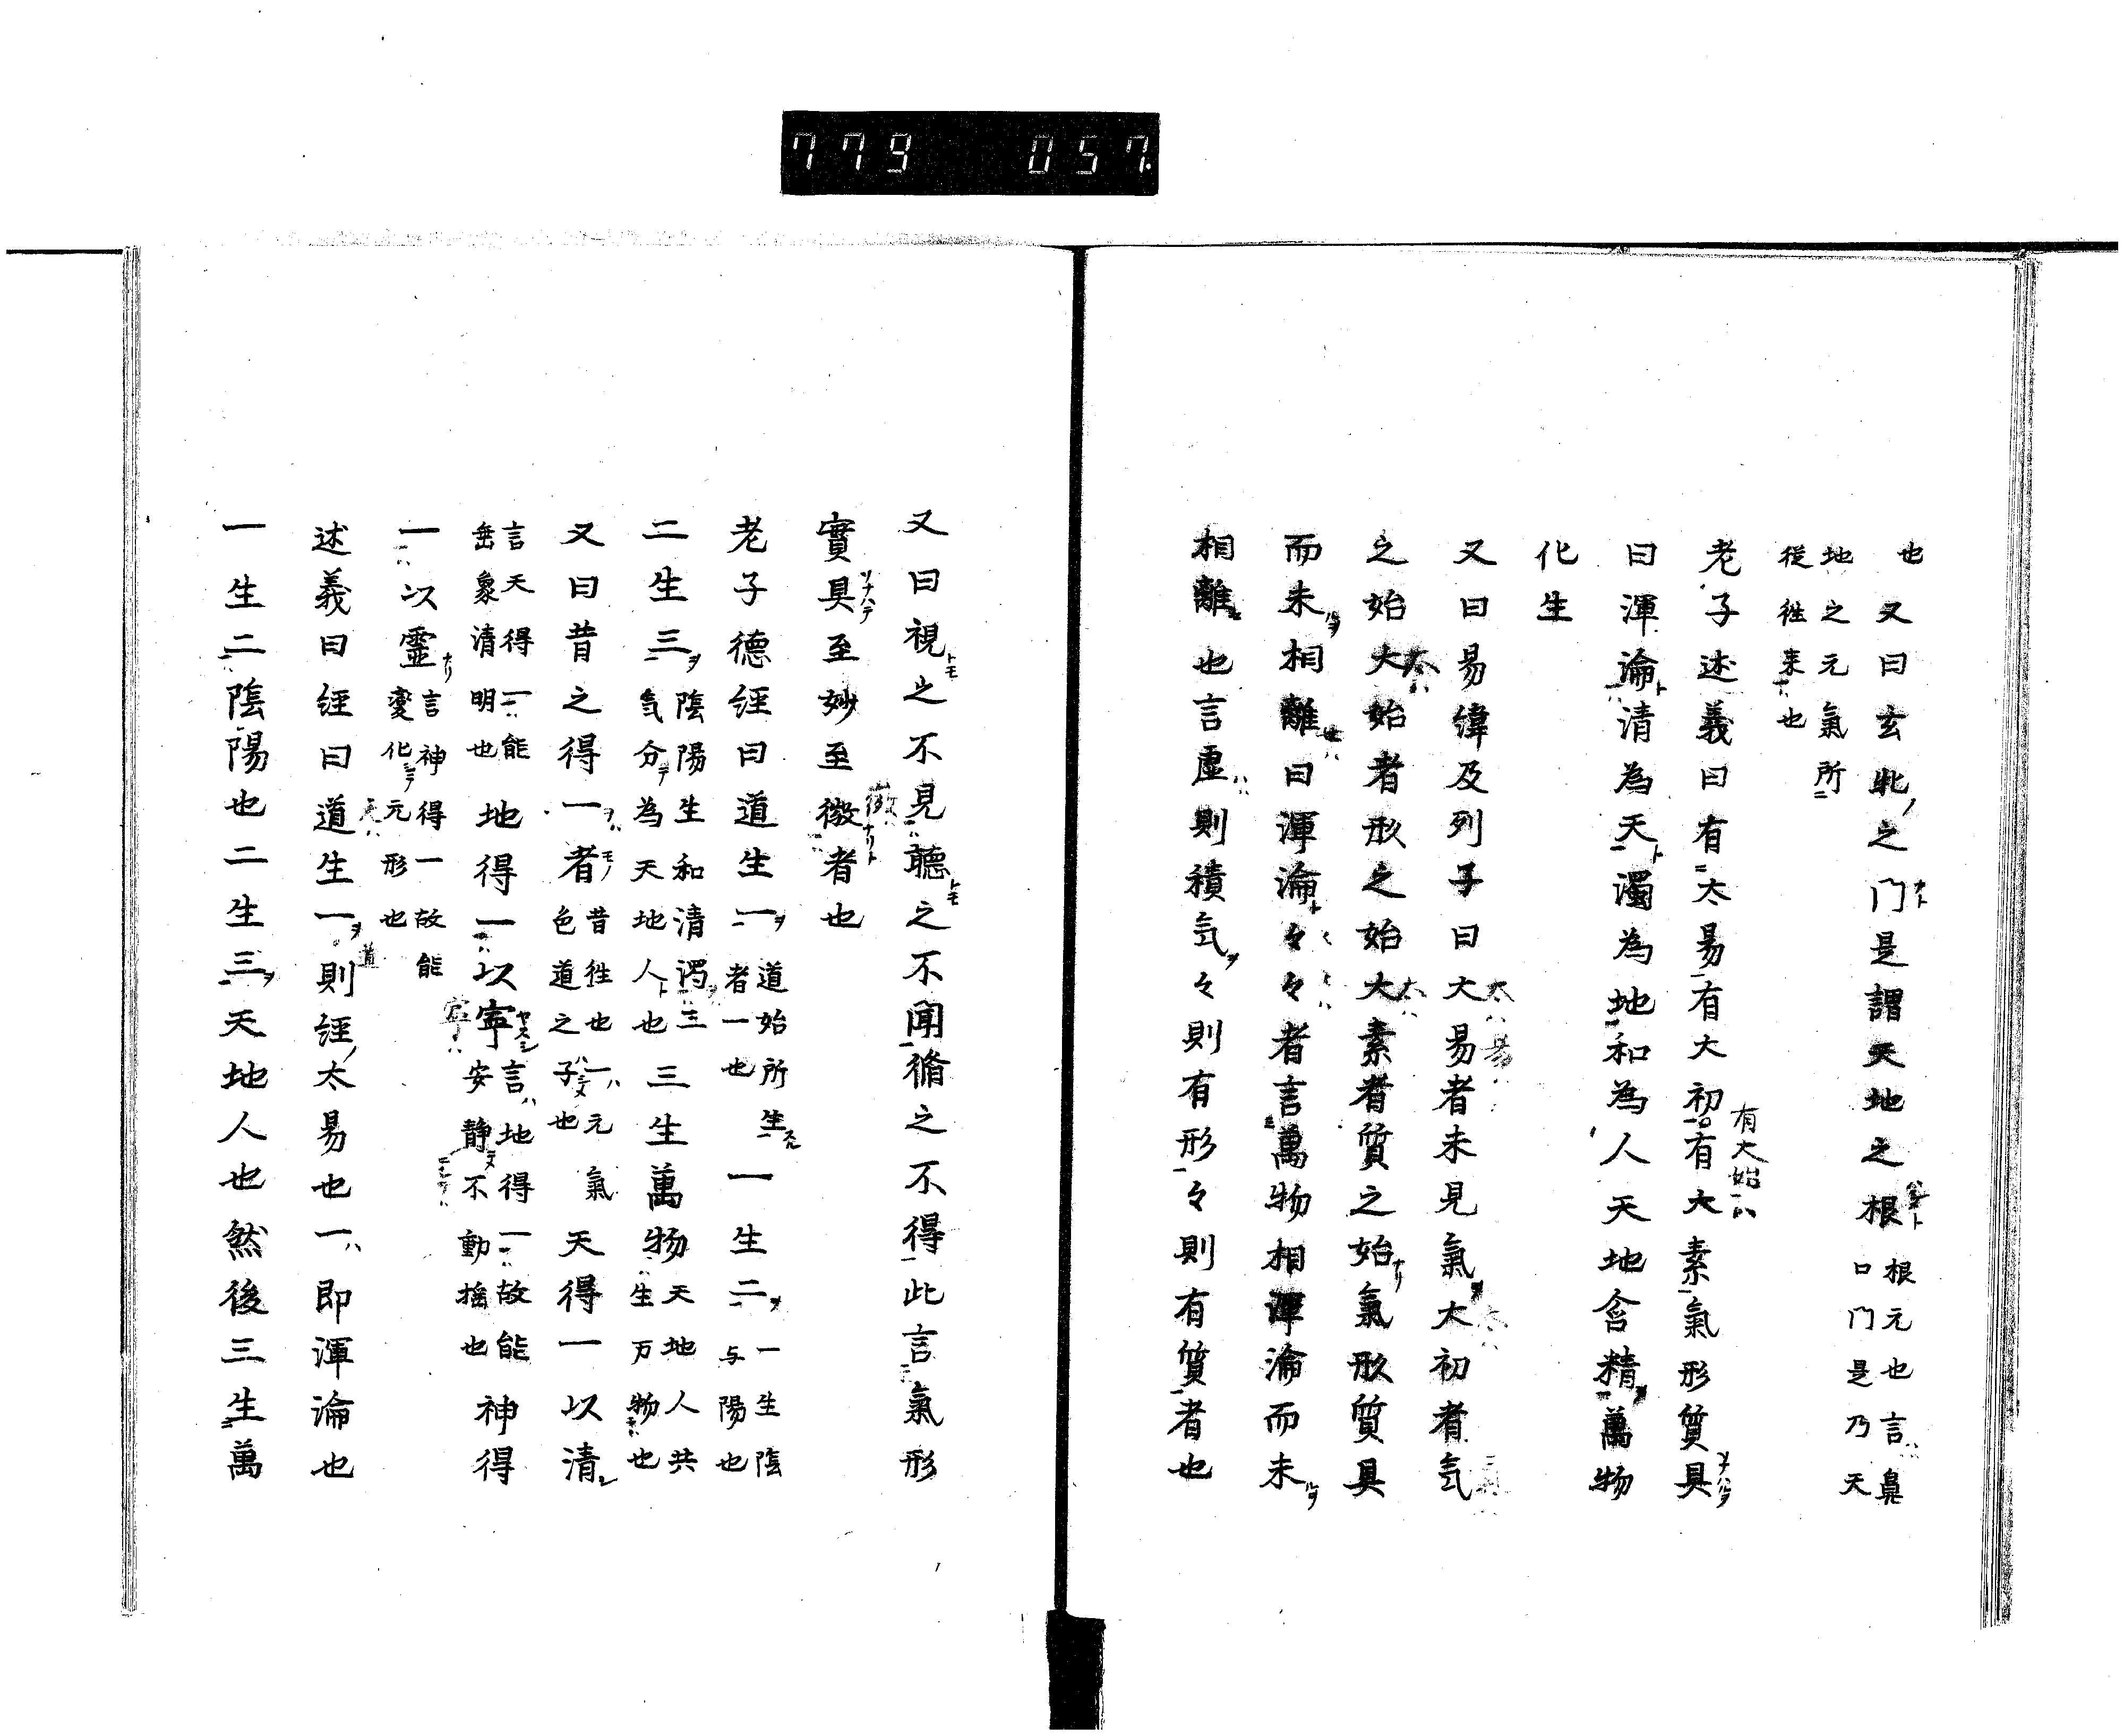 779 057
也又曰玄牝之门是謂天地之根根元也言鼻口门是乃天
地之元氣所従徃来也
老子述義曰有太易有大初有大素氣形質具
有大始
曰渾淪清為天濁為地和為人天地含精萬物
化生
又曰易緯及列子曰大易者未見氣大初者氣
之始大始者形之始大素者質之始氣形質具
而未相離曰渾淪々々者言萬物相渾淪而未
相離也言虛則積気々則有形々則有質者也
又曰視之不見聽之不聞循之不得此言氣形
實具至妙至微者也
老子德経曰道生一道始所生者一也一生二一生陰与陽也
二生三陰陽生和清濁三気分為天地人也三生萬物天地人共生万物也
又曰昔之得一者昔徃也一元氣色道之子也天得一以清
言天得一能垂象清明也地得一以寧言地得一故能安静不動揺也神得
一以靈言神得一故能變化元形也
述義曰経曰道生一則経太易也一即渾淪也
一生二陰陽也二生三天地人也然後三生萬